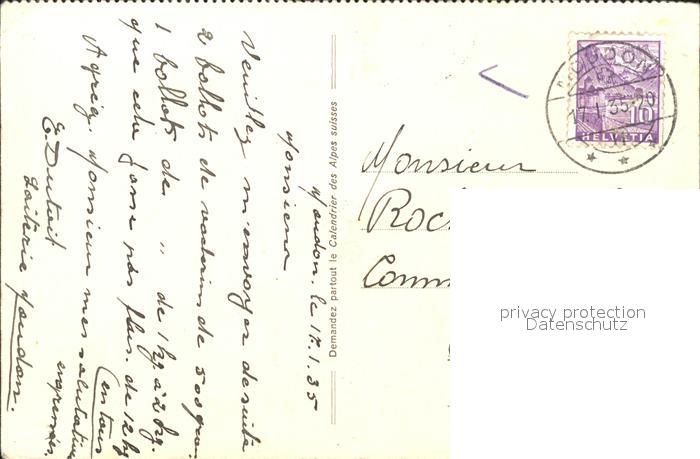 Moudon. le 17.1.35
Monsieur
Veuillez m'envoyer de suite
2 ballots de vacherins de 500 gr.
1 ballots de " de 1 kg à 2 kg.
que cela fasse pas plus. de 12 kg
(en tout
Agréez Monsieur mes salutations
empressées.
E. Dutoit
Laiterie Moudon.
Demandez partout le Calendrier des Alpes suisses
Monsieur
Roch
Comm
MOUDON
17.I.35-20
10
HELVETIA
privacy protection
Datenschutz